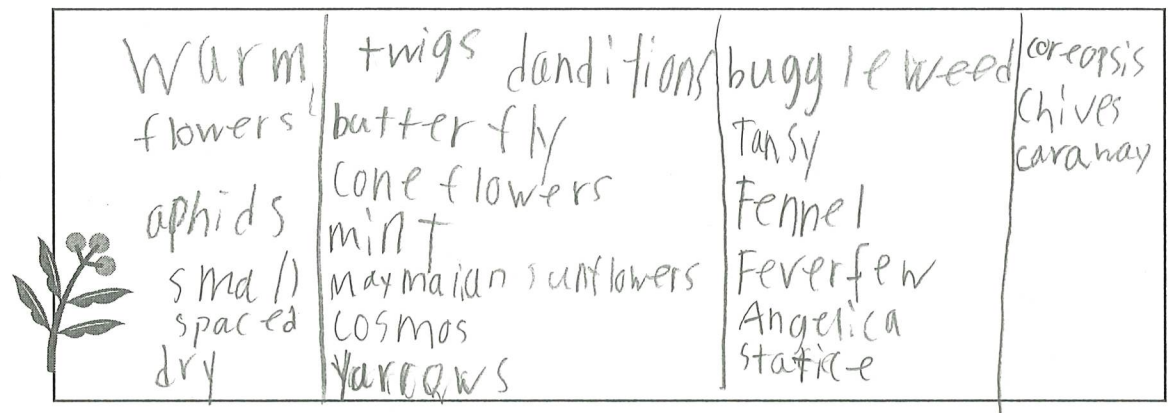 warm
flowers
aphids
small
spaced
dry
twigs danditions
butterfly
cone flowers
mint
maymaiian sunflowers
cosmos
Yarrows
buggleweed
Tansy
Fennel
Feverfew
Angelica
statice
coreopsis
Chives
caraway